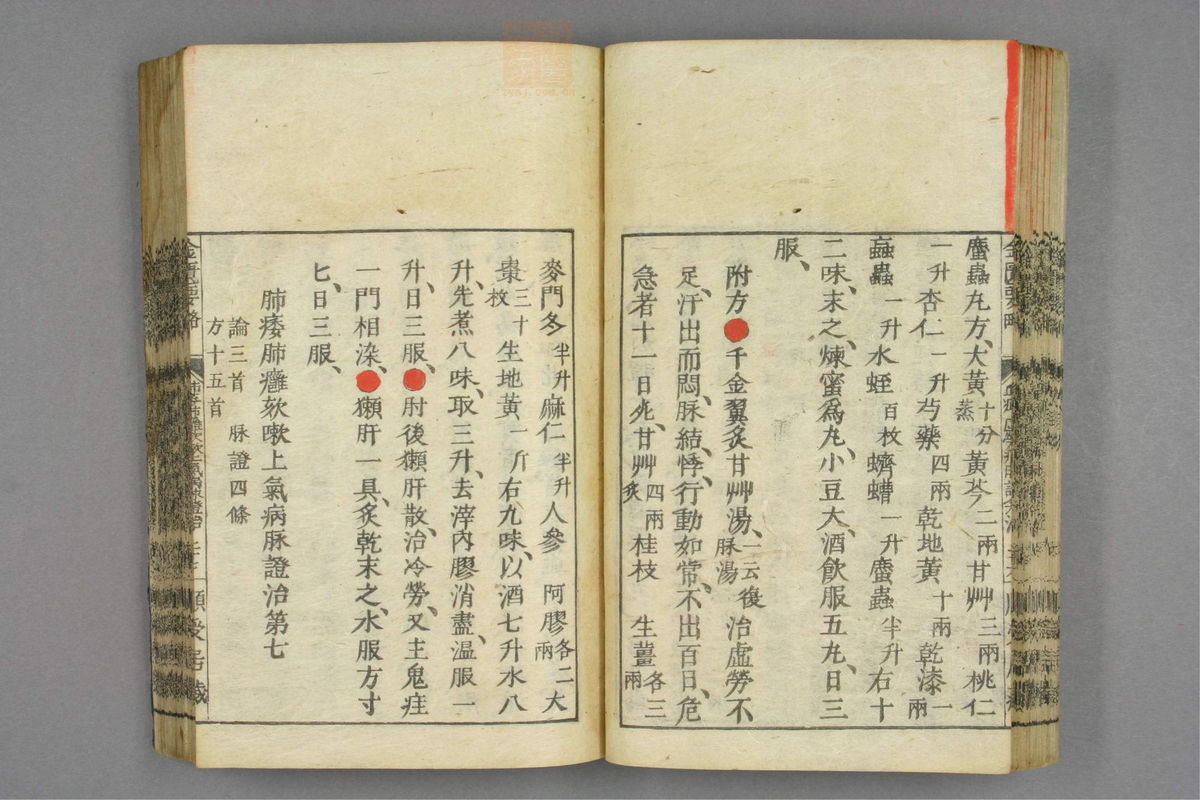 䗪蟲丸方、大黃十分蒸黃芩二兩甘艸三兩桃仁
一升杏仁一升芍藥四兩乾地黃、十兩乾漆一兩
蝱蟲一升水蛭百枚蠐螬一升䗪蟲半升右十
二味、末之、煉蜜為丸、小豆大、酒飲服五丸、日三
服、
附方千金翼炙甘艸湯、一云復脉湯治虛勞不
足、汗出而悶、脉結、悸、行動如常、不出百日、危
急者十一日死、甘艸四兩炙桂枝生薑各三兩
麥門冬半升麻仁半升人參阿膠各二兩大
棗三十枚生地黃、一斤右九味、以酒七升水八
升、先煮八味、取三升、去滓內膠消盡、温服一
升、日三服、肘後獺肝散、治冷勞、又主鬼疰
一門相染、獺肝一具、炙乾末之、水服方寸
匕、日三服、
肺痿肺癰欬嗽上氣病脉證治第七
論三首脉證四條
方十五首
金匱要略